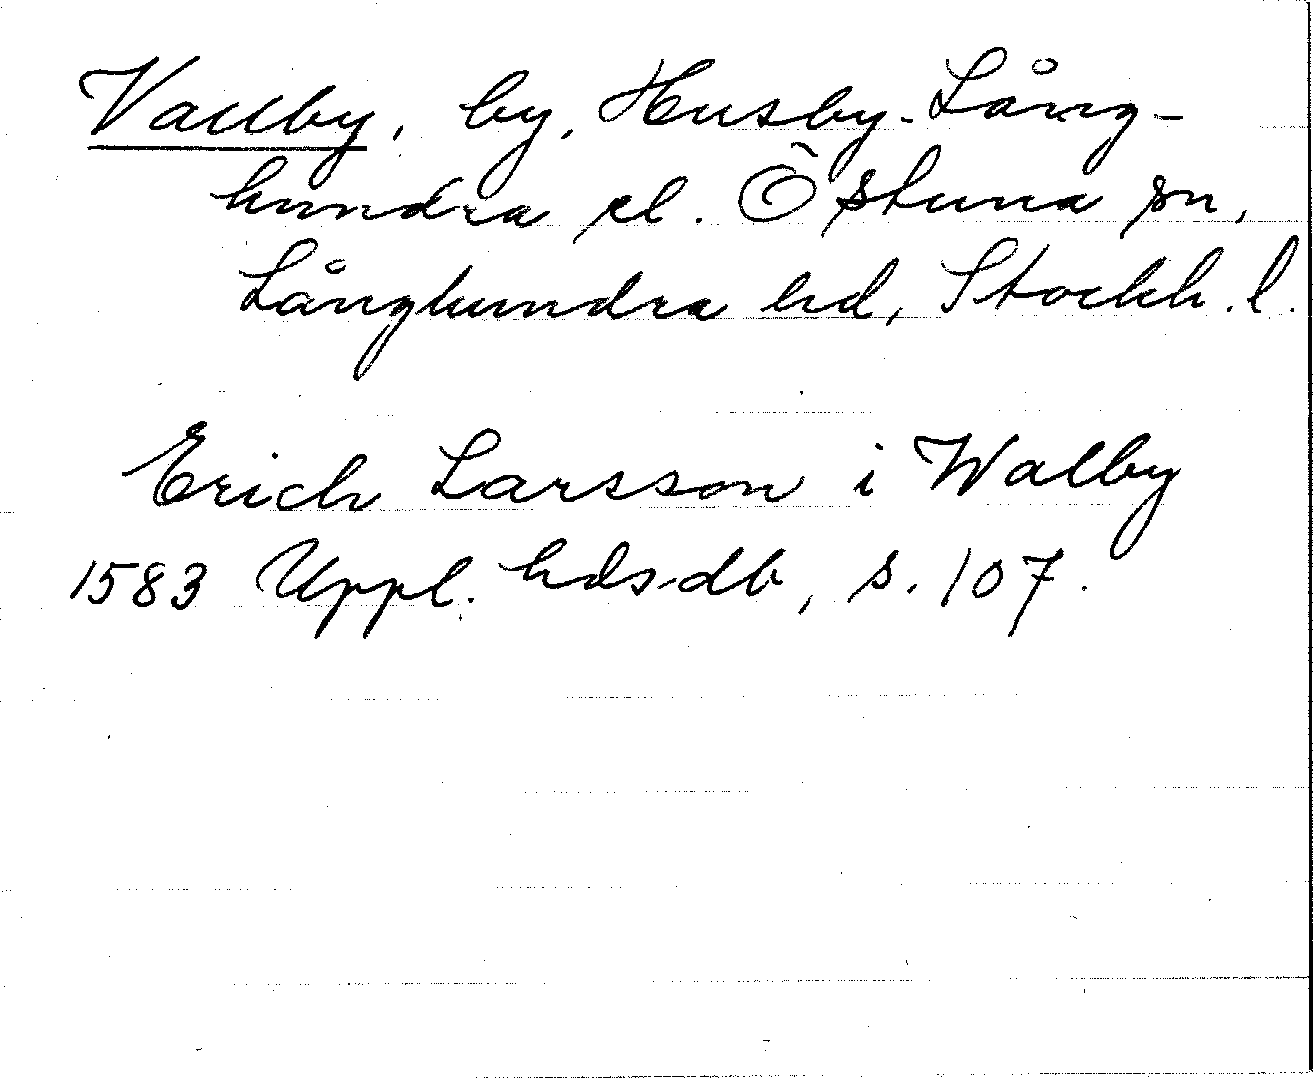 Vallby, by, Husby-Lång-
hundra el. Östuna sn,
Långhundra hd, Stockh. l.
Erich Larsson i Walby
1583 Uppl. hds.db, s. 107.